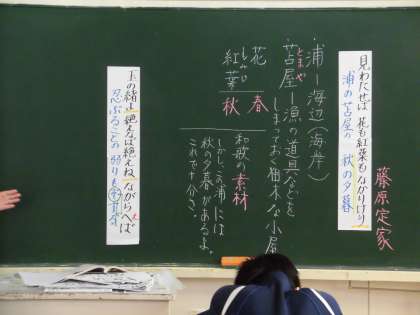 藤原定家
見わたせば 花も紅葉もなかりけり
浦の苫屋の 秋の夕暮
・浦ー海辺(海岸)
とまや
・苫屋ー漁の道具などを
しまっておく粗末な小屋
花 春
もみじ
紅葉 秋
和歌の素材
しかし、この浦には
秋の夕暮があるよ。
これで十分さ。
玉の緒よ 絶えなば絶えね ながらへば
忍ぶることの 弱りもぞする